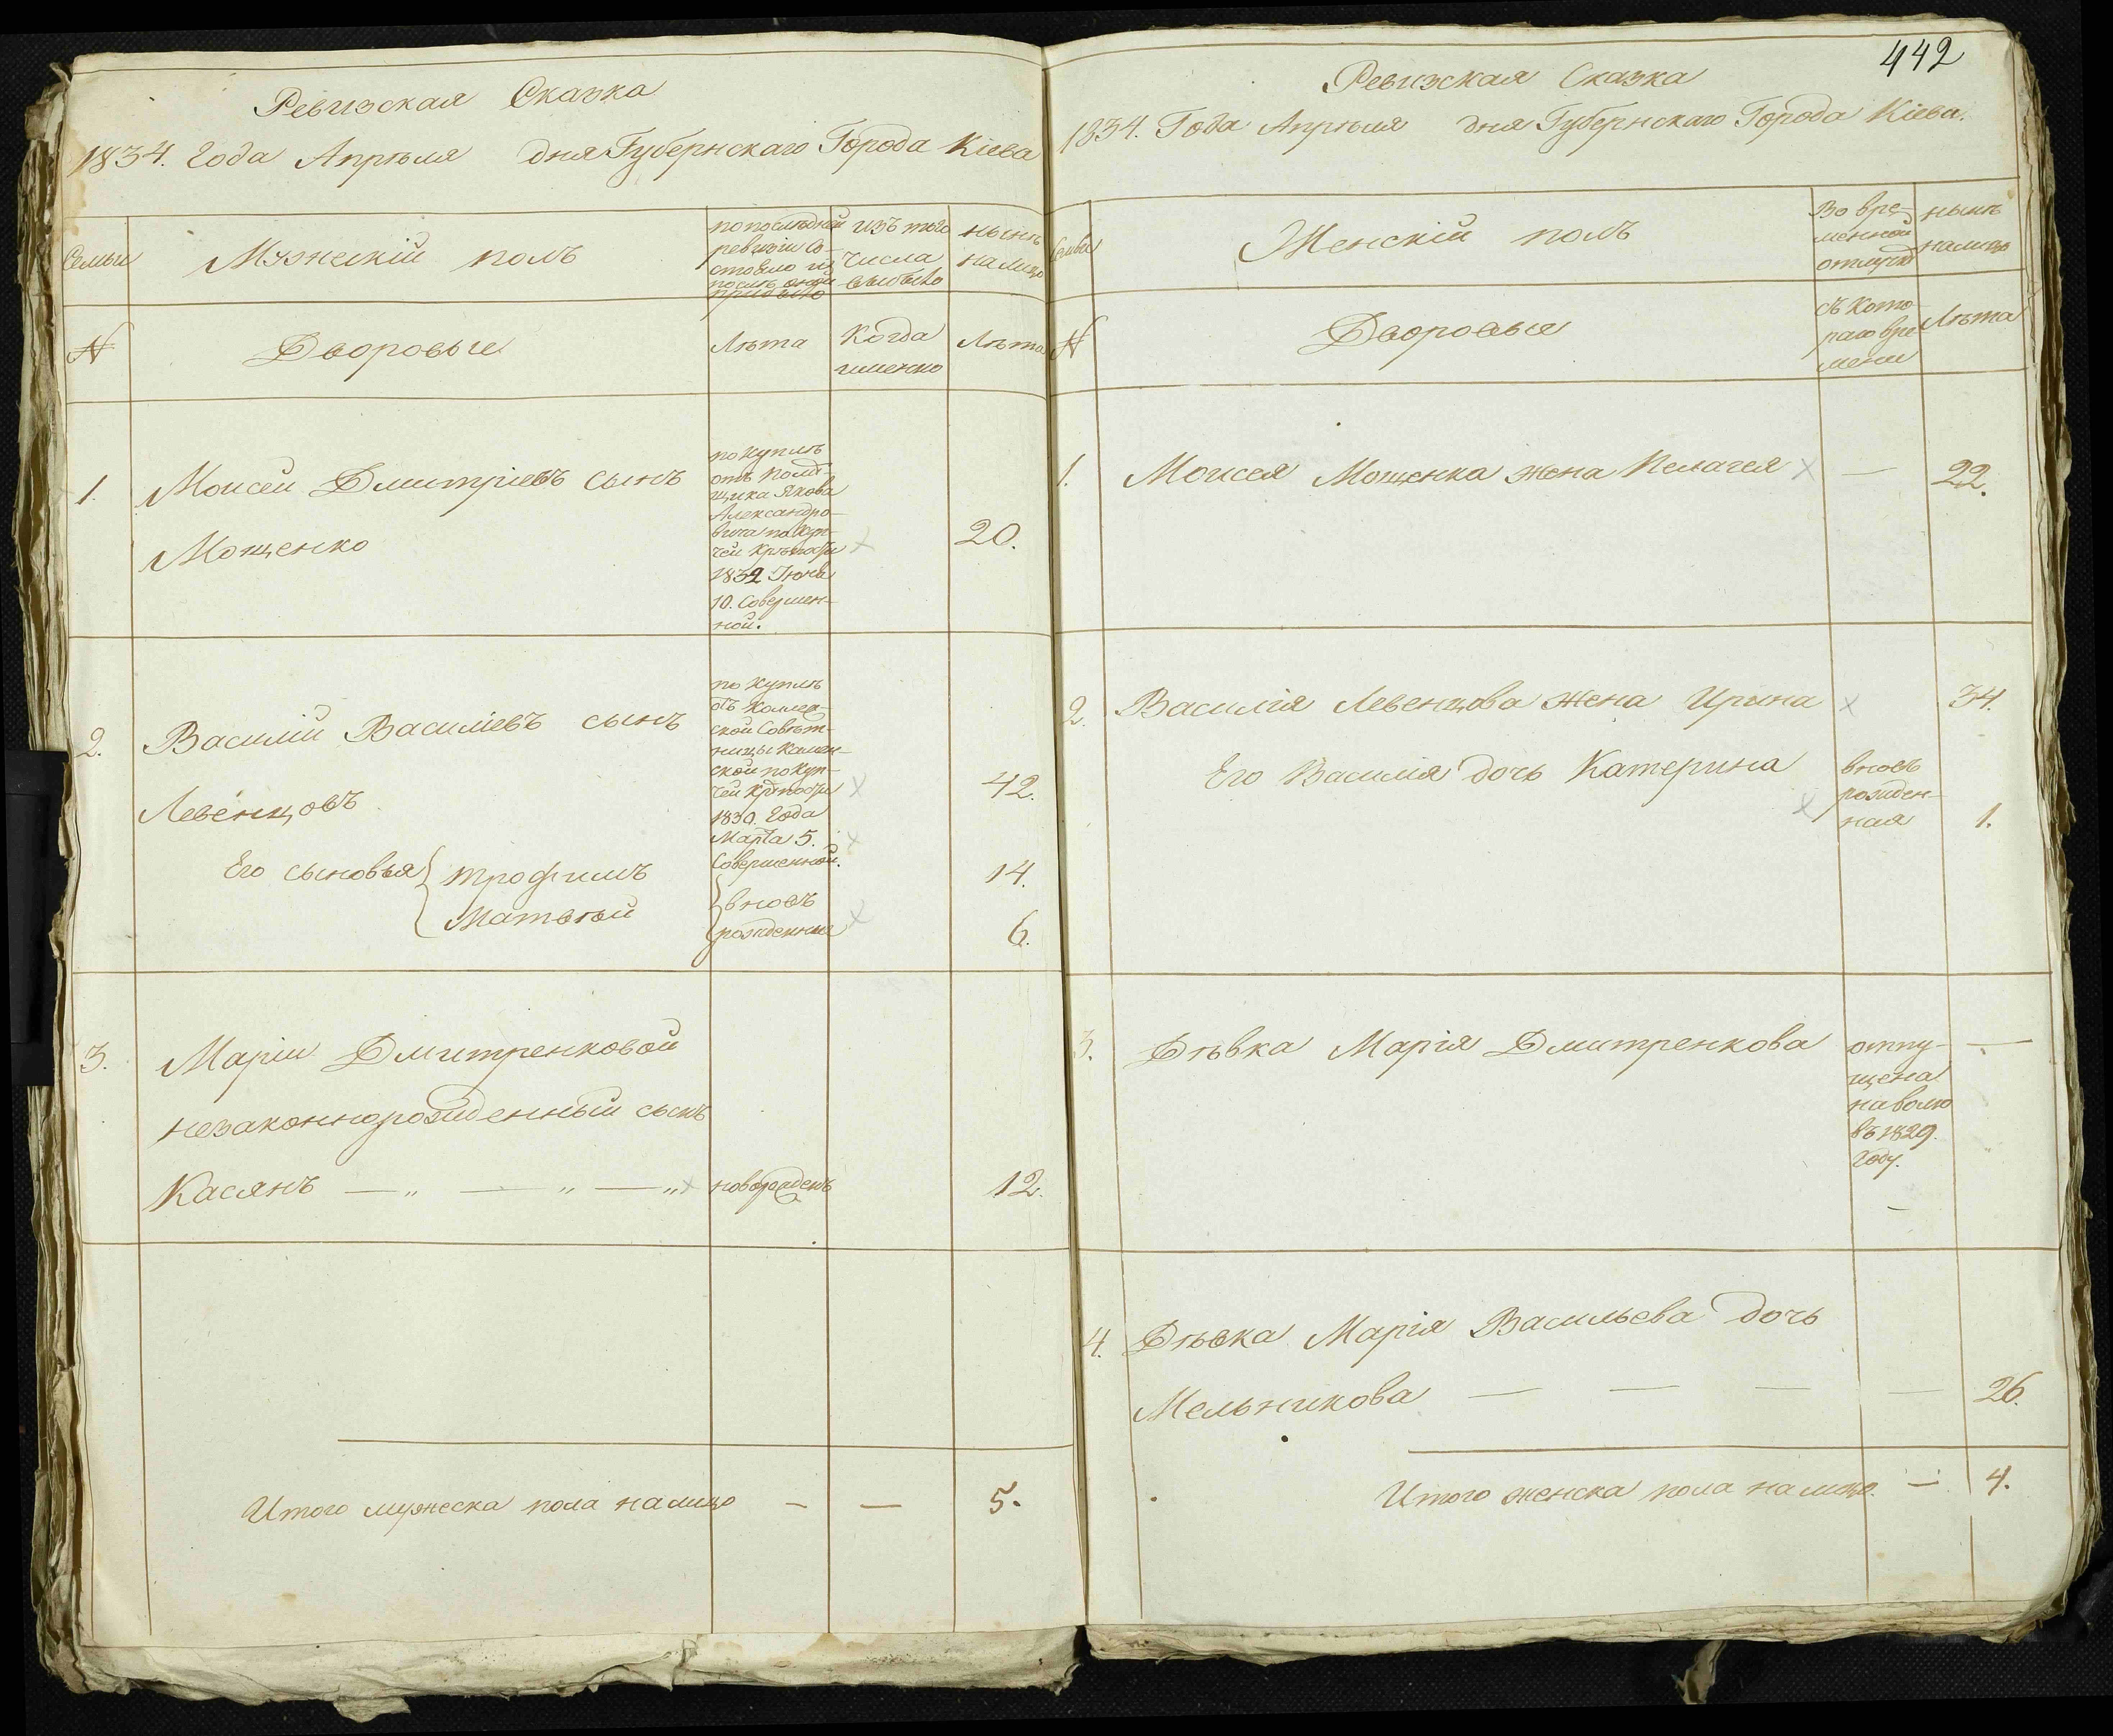 Ревизская Сказка
1834. Года Апрѣля дня Губернскаго Города Кіева
Семьи
Мужескій полъ
по послѣдней
ревизіи со-
стояло и
послѣ оной
прибыло
изъ того
числа
выбыло
нынѣ
на лицо
№
Дворовые
Лѣта
Когда
именно
Лѣта
1.
Моисей Дмитріевъ сынъ
Мощенко
по куплѣ
отъ помѣ-
щика Якова
Александро-
вича по куп-
чей крѣпости
1832 Іюня
10. Совершен-
ной.
20.
2.
Василій Василіевъ сынъ
Левенцовъ
по куплѣ
отъ Коллеж-
ской Совѣт-
ницы
ской по куп-
чей крѣпости
1830. Года
Марта 5.
Совершенной.
42.
Его сыновья
Трофимъ
14.
Матвѣй
вновь
рожденные
6.
3.
Маріи Дмитренковой
незаконнорожденный сынъ
Касянъ — „ — „ — „
новорожденъ
12.
Итого мужеска пола на лицо — —
5.
442
Ревизская Сказка
1834. Года Апрѣля дня Губернскаго Города Кіева.
Семьи
Женскій полъ
Во вре-
менной
отлучкѣ
нынѣ
на лицо
№
Дворовые
съ кото-
раго вре-
мени
Лѣта
1.
Моисея Мощенка жена Пелагея —
22.
2.
Василія Левенцова жена Ирина
34.
Его Василія дочь Катерина
вновь
рожден-
ная
1.
3.
Дѣвка Марія Дмитренкова
отпу-
щена
на волю
въ 1829.
Году.
—
4.
Дѣвка Марія Васильева дочь
Мельникова — — — —
26.
Итого женска пола на лицо. —
4.